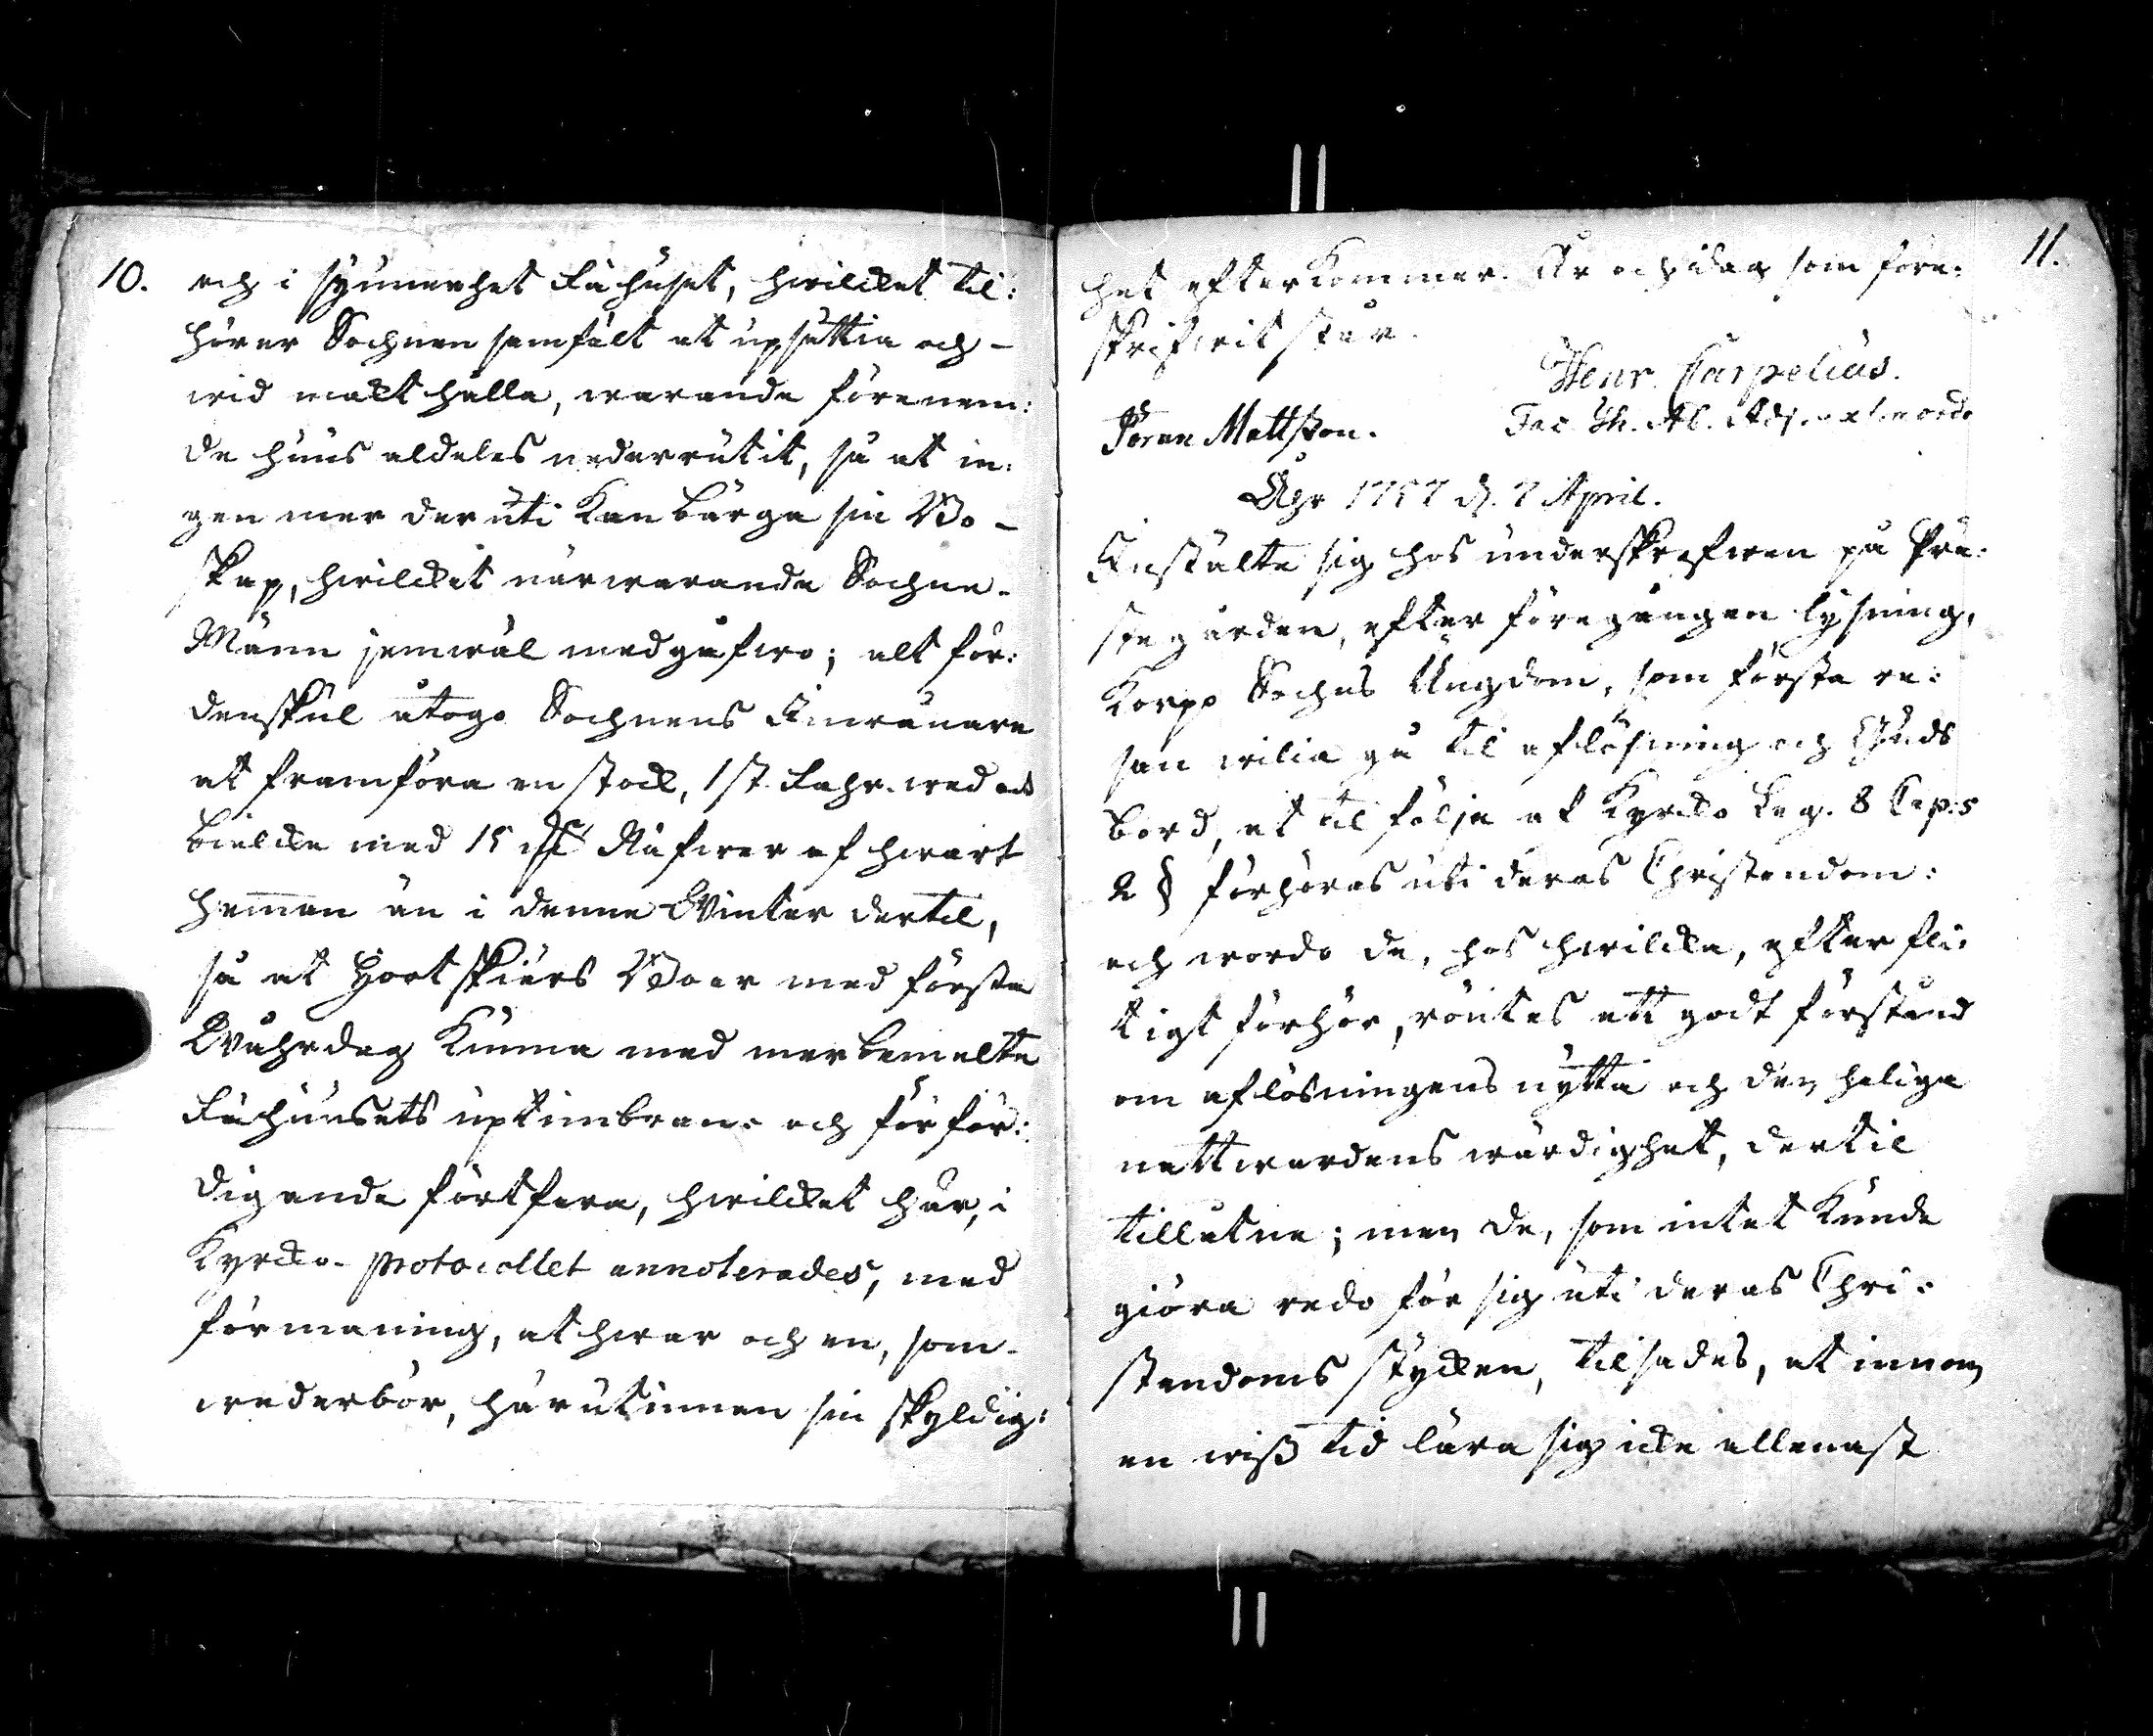 10. och i synnerhet Fähuset, hwilcket til:
hörer Sochnen samfält at upsättia och-
wid mackt hålla, warande förenem:
de huus aldeles nederrutit, så at in:
gen mer deruti kan bärga sin Bo-
skap, hwilcket närwarande Sochne-
Männ jemwäl medgåfwo; alt för:
denskul åtogo Sochnens Inwånare
at framföra en stock, 1 st. Fahr. wed och
bielcke med 15 st. Näfwer af hwart
hemman än i denne Winter dertil,
så at Boer med första
Wåhrdag kunna med merbemälte
Fähuusets uptimbran: och förfär:
digande fortfara, hwilcket här, i
Kyrcko-protocollet annoterades, med
förmaning, at hwar och en, som-
wederbör, härutinnan sin skyldig:
11.
het efterkommer. År och dag som före:
skrifwit står.
Henr. Carpelius.
Sac. Th. Ab. Adj. extraord.
Jöran Mattsson.
Åhr 1757 d. 7 April.
Instälte sig hos underskrefwen på Prä:
stegården, efter föregången lysning,
Korpo Sochns Ungdom, som första re:
san wilia gå til aflösning och Guds
bord, at til följe af Kyrcko Lag. 8 Cap:s
2 § förhöras uti deras Christendom:
och wordo de, hos hwilcka, efter fli:
tigt förhör, röntes ett godt förstånd
om aflösningens nytta och den heliga
nattwardens wärdighet, dertil
tillåtne; men de, som intet kunde
giöra redo för sig uti deras Chri:
stendoms stycken, tilsades, at innom
en wiß tid lära sig icke allenast